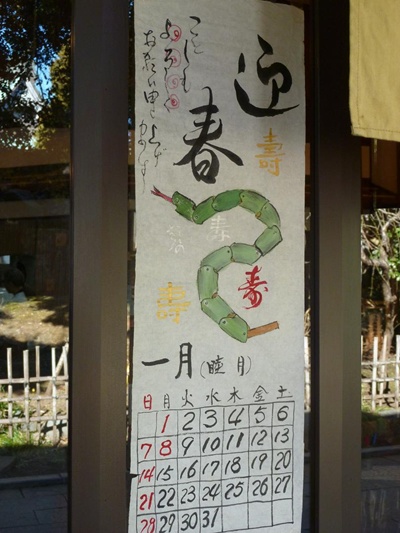 迎春
ことしも
よろしく
お願い申し上げます
壽
寿
寿
壽
一月(睦月)
日 月 火 水 木 金 土
1 2 3 4 5 6
7 8 9 10 11 12 13
14 15 16 17 18 19 20
21 22 23 24 25 26 27
28 29 30 31